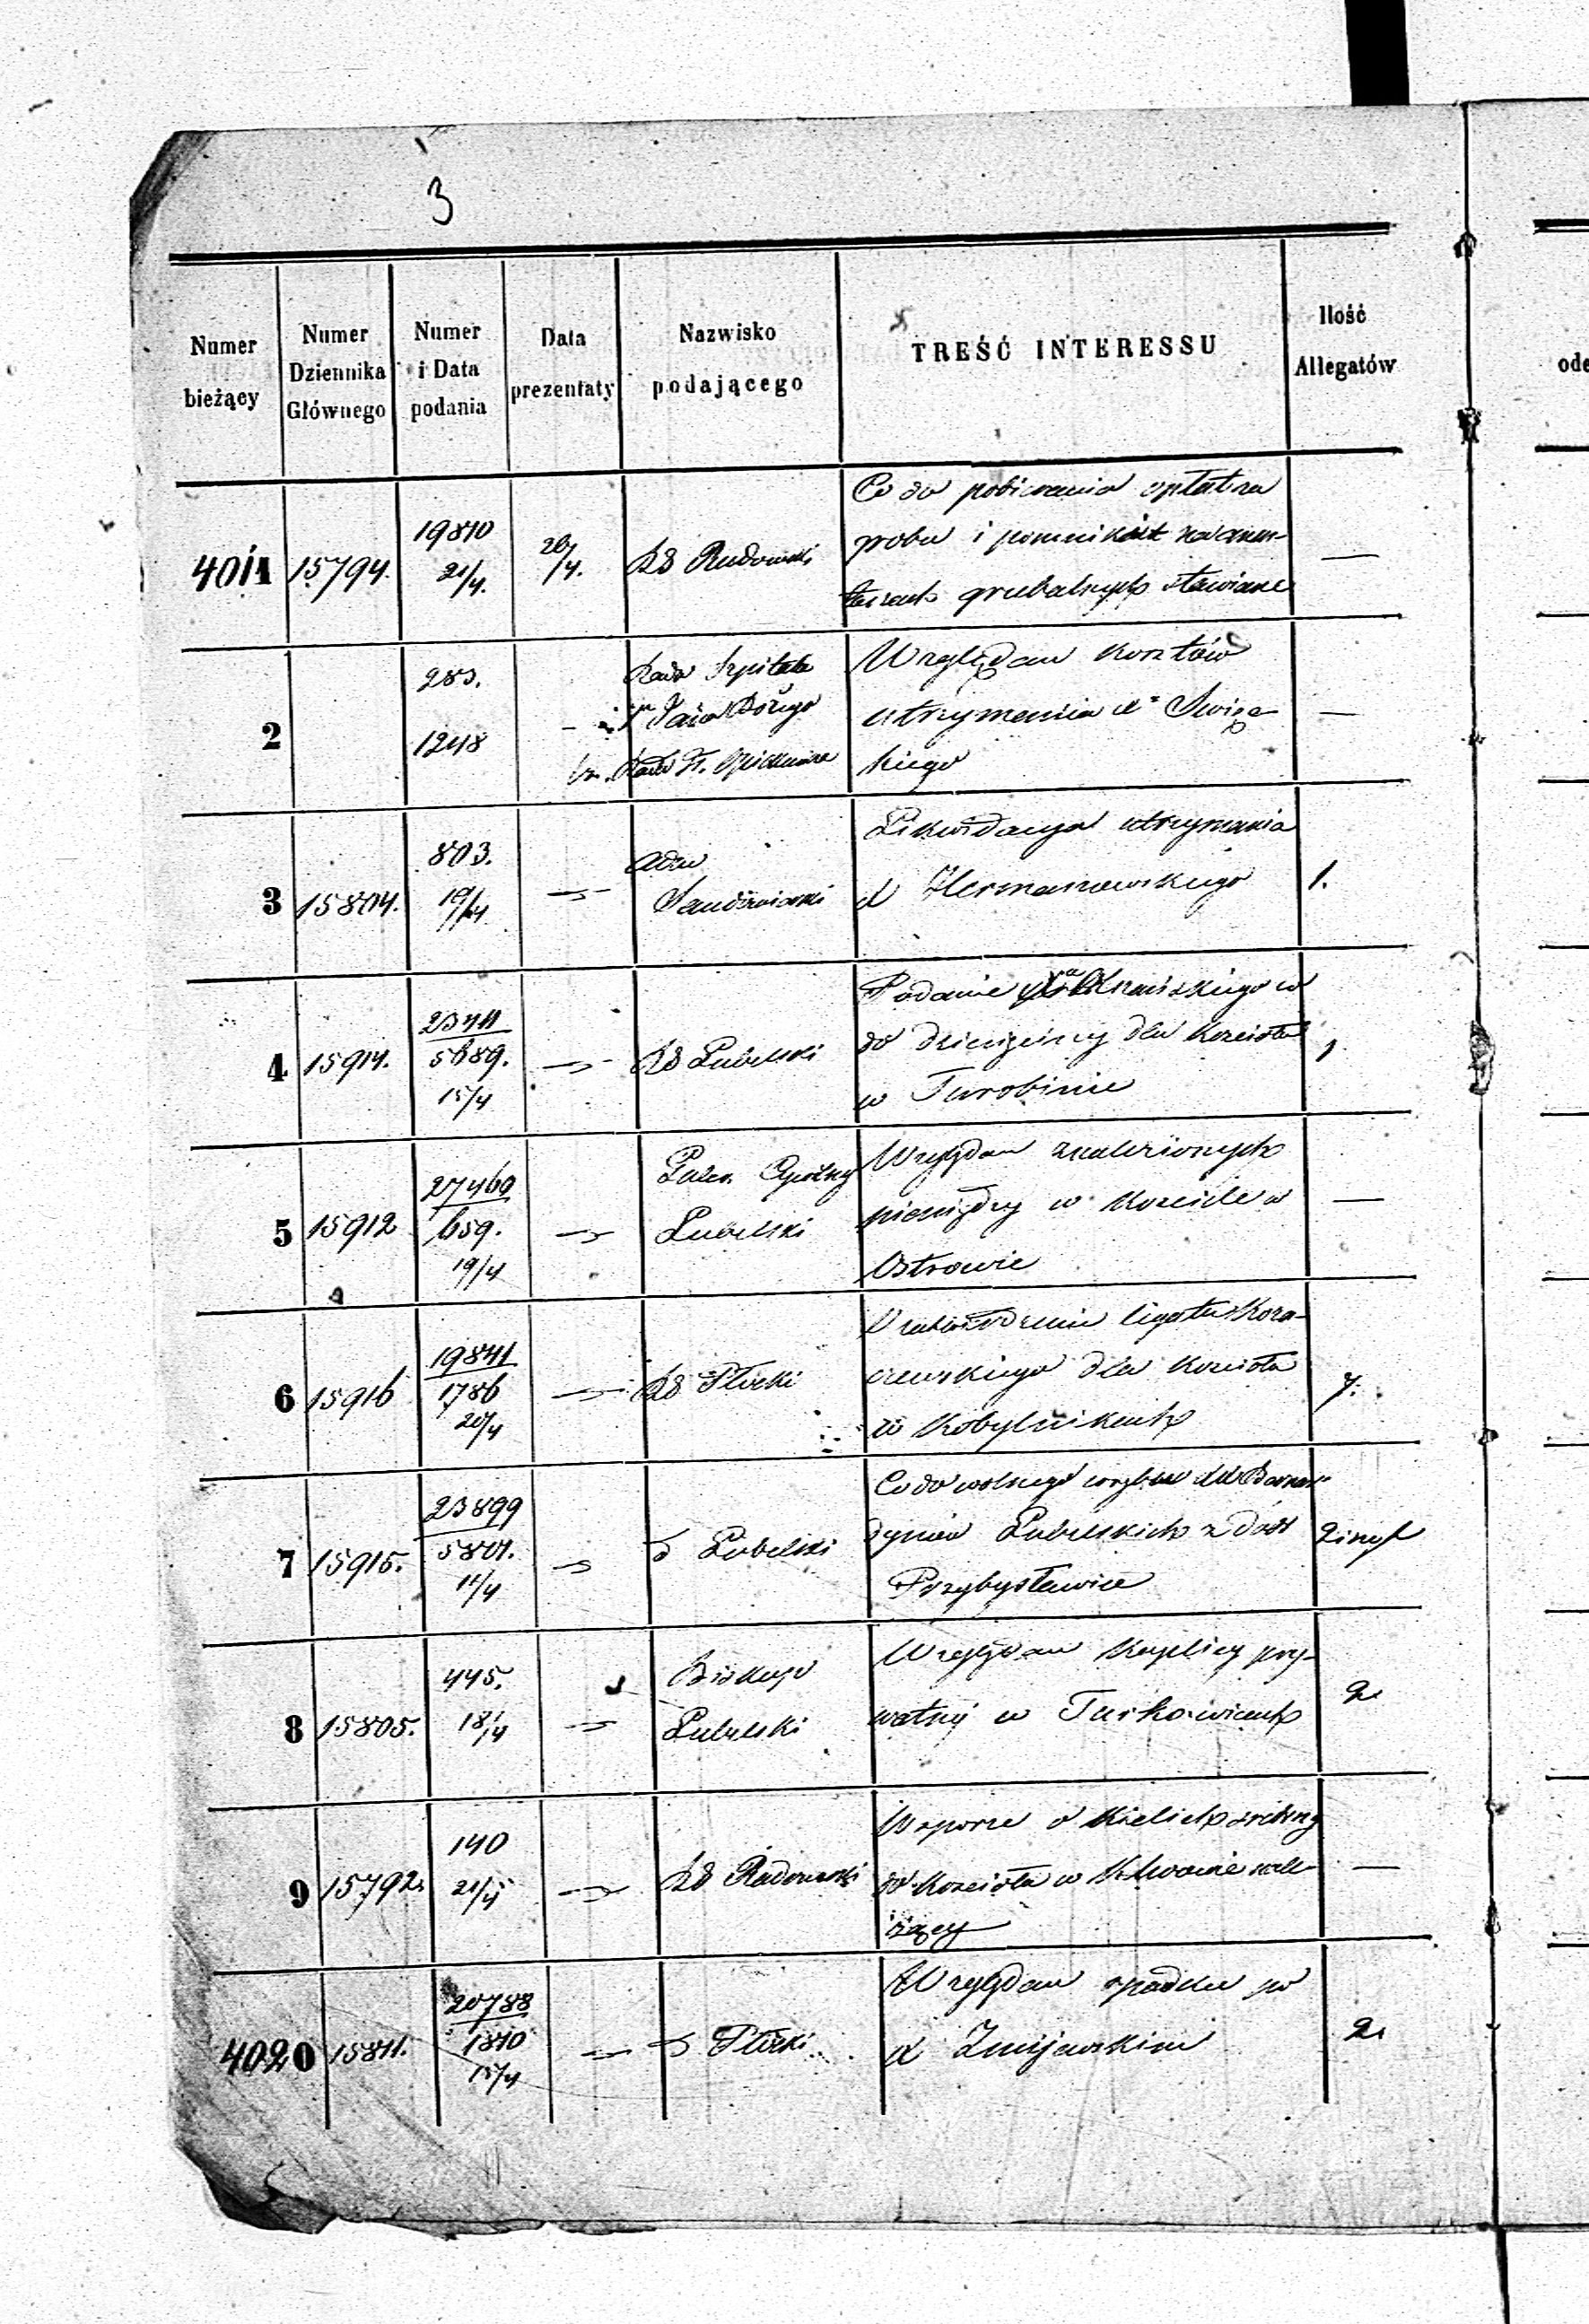 3
Numer bieżący
Numer Dziennika Głównego
Numer i Data podania
Data prezentaty
Nazwisko podającego
TREŚĆ INTERESSU
Ilość Allegatów
ode
4011 15794. 19810 21/4. 26/4. Rd Radomski
Co do pobierania opłat za
groby i pomniki na cmen-
tarzach grzebalnych stawiane —
2 283. 1248
Rada Szpitala
Jana Bożego
Względem kosztów
utrzymania X Święc-
kiego —
3 15804. 803. 19/4
Adm
Sandomierski
Likwidacya utrzymania
X Hermanowskiego 1.
4 15914. 23411 5689. 15/4 Rd Lubelski
Podanie
do dziesięciny dla kościoła
w Turobinie 1
5 15912 27460 659. 19/4
Lubelski
Względem znalezionych
pieniędzy w kościele w
Ostrowie —
6 15916 19841 1786 20/4 Rd Płocki
legatu Kora-
czewskiego dla kościoła
w Kobylnikach 7.
7 15915. 23899 5801. 11/4 Lubelski
Co do wolnego wrębu XX Bernar-
dynów Lubelskich z dóbr
Przybysławice
8 15805. 445. 18/4
Biskup
Lubelski
Względem Kaplicy pry-
watnej w Turkowicach 2.
9 15792. 140 21/4 Rd Radomski
W sporze o Kielich srebrny
do kościoła w Klwowie nale-
żący —
4020 15811. 20788 1810 15/4 Płocki
Względem spadku po
X Żmijewskim 2.